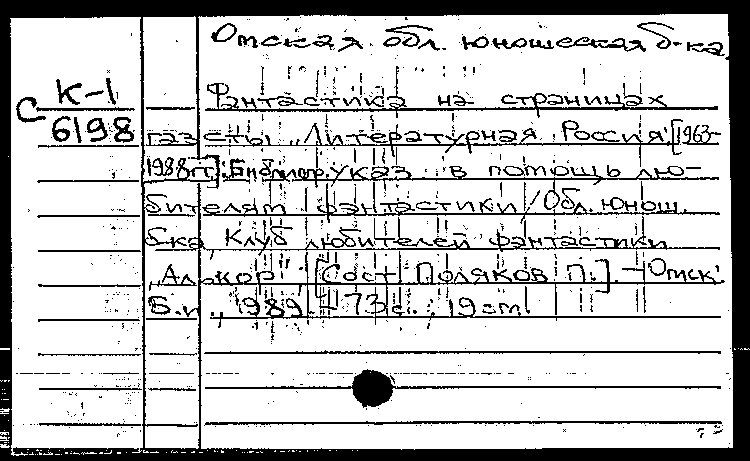 Омская обл. юношеская б-ка
К-1
С
6198
Фантастика на страницах
газеты „Литературная Россия" [1963-
1988гг]: Библиогр. указ. в помощь лю-
бителям фантастики / Обл. юнош.
б-ка, Клуб любителей фантастики
„Алькор"; [Сост. Поляков П.]. – Омск:
Б.и., 1989. – 73 с.; 19 cm.